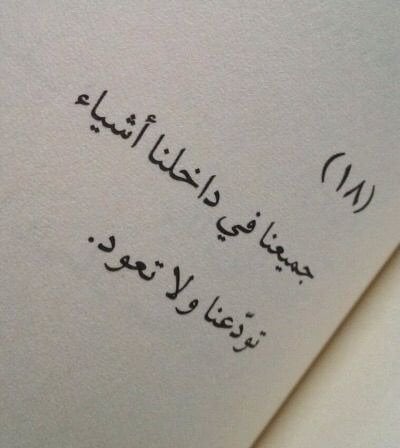 (١٨)
جميعنا في داخلنا أشياء
تودّعنا ولا تعود.